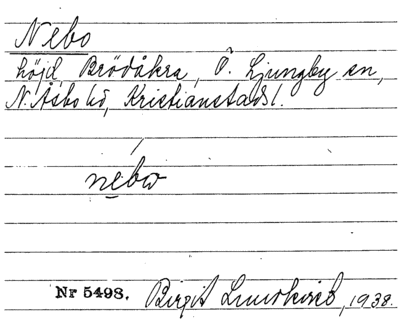 Nebo
höjd Brödåkra, Ö. Ljungby sn,
N. Åsbo hd, Kristianstads l.
nebω
Nr 5498. Birgit Lundkvist, 1938.